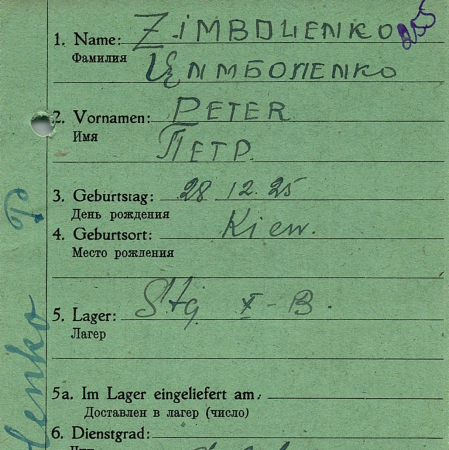 255
1. Name: ZIMBOLIENKO
Фамилия ЦИМБОЛЕНКО
2. Vornamen: PETER
Имя ПЕТР.
3. Geburtstag: 28 12. 25
День рождения
4. Geburtsort: Kiew.
Место рождения
5. Lager: Stg X-B.
Лагерь
5a. Im Lager eingeliefert am:
Доставлен в лагерь (число)
6. Dienstgrad:
lenko